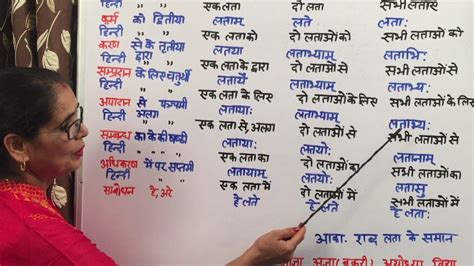 हिन्दी " " एक लता दो लताएं सभी लताएं
कर्म को द्वितीया लताम् लते लता:
हिन्दी " " एक लता को दो लताओं को सभी लताओं को
करण से के तृतीया लतया लताभ्याम् लताभि:
हिन्दी द्वारा " एक लता के द्वारा दो लताओं से सभी लताओं से
सम्प्रदान के लिए चतुर्थी लतायै लताभ्याम् लताभ्य:
हिन्दी " " एक लता के लिए दो लताओं के लिए सभी लताओं के लिए
अपादान से पञ्चमी लताया: लताभ्याम् लताभ्य:
हिन्दी अलग " एक लता से, अलग दो लताओं से सभी लताओं से
सम्बन्ध का के की षष्ठी लताया: लतयो: लतानाम्
हिन्दी " एक लता का दो लताओं का सभी लताओं का
अधिकरण में पर सप्तमी लतायाम् लतयो: लतासु
हिन्दी " एक लता में दो लताओं में सभी लताओं में
सम्बोधन हे, अरे हे लते हे लते हे लता:
आबा. शब्द लता के समान
अजा (बकरी) अयोध्या विद्या